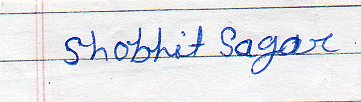 Shobhit Sagar